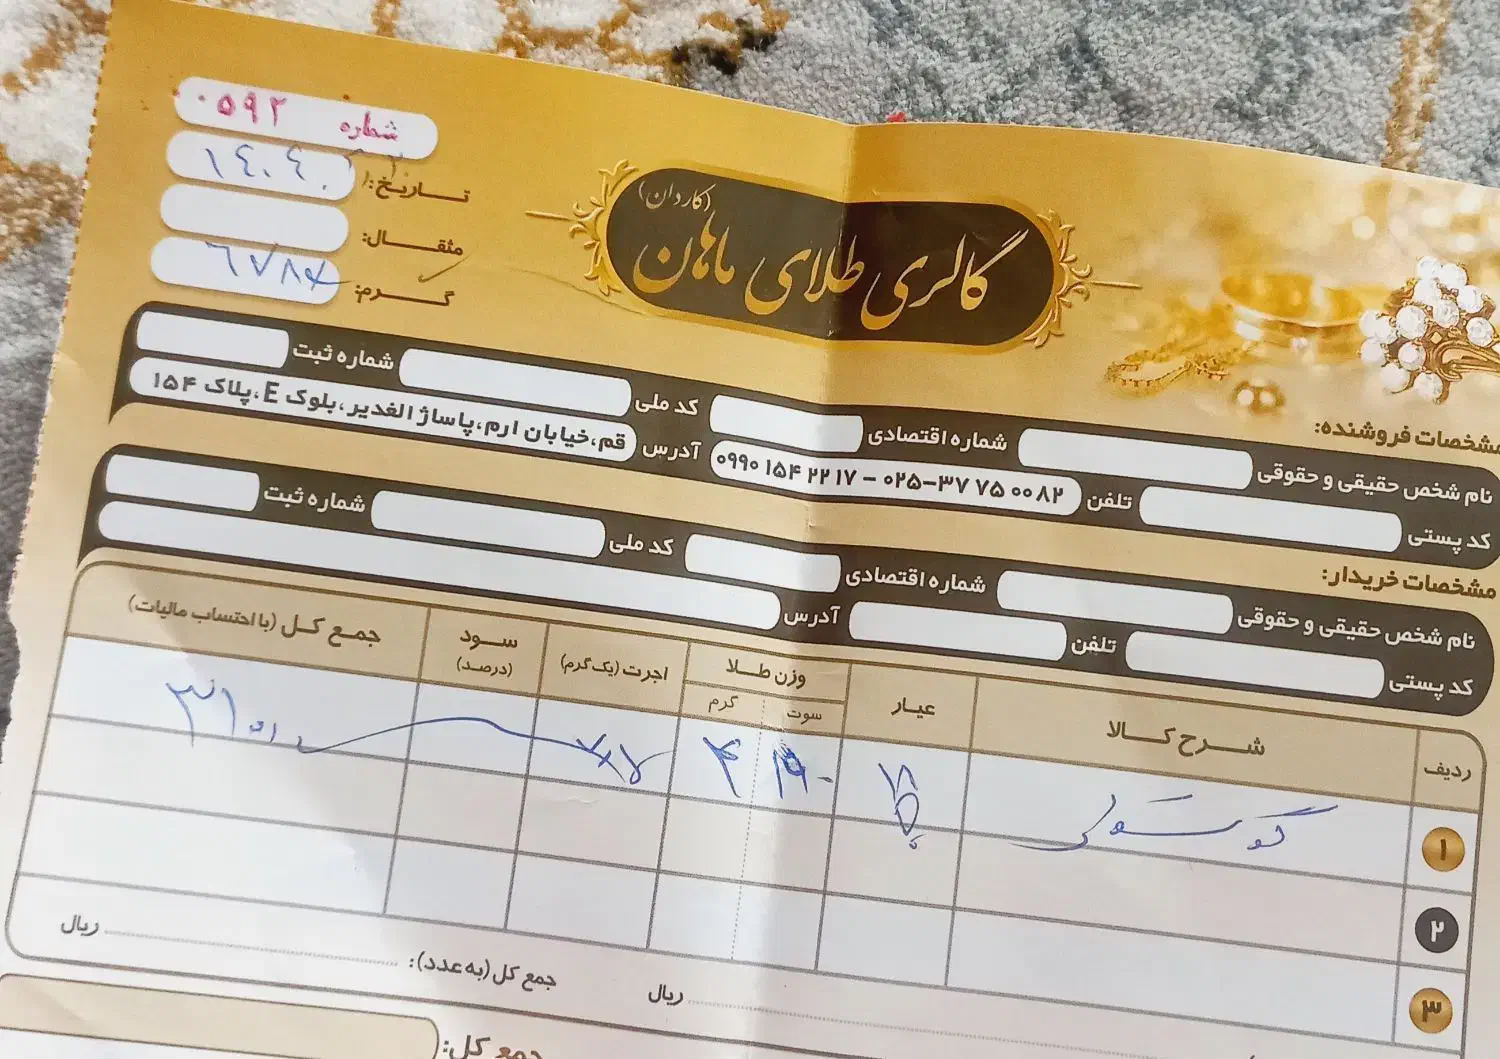 شماره ۰۵۹۲
تاریخ:
مثقال:
گرم: ۶۷۸۷
(کاردان)
گالری طلای ماهان
مشخصات فروشنده:
نام شخص حقیقی و حقوقی شماره اقتصادی کد ملی شماره ثبت
کد پستی تلفن ۰۹۹۰ ۱۵۴ ۲۲ ۱۷ - ۰۲۵-۳۷ ۷۵ ۰۰ ۸۲ آدرس قم،خیابان ارم،پاساژ الغدیر،بلوک E،پلاک ۱۵۴
مشخصات خریدار:
نام شخص حقیقی و حقوقی شماره اقتصادی کد ملی شماره ثبت
کد پستی تلفن آدرس
ردیف شرح کالا عیار وزن طلا اجرت (یک گرم) سود (درصد) جمع کل (با احتساب مالیات)
سوت گرم
۱
۲
۳
جمع کل (به عدد): ریال
ریال
جمع کل: